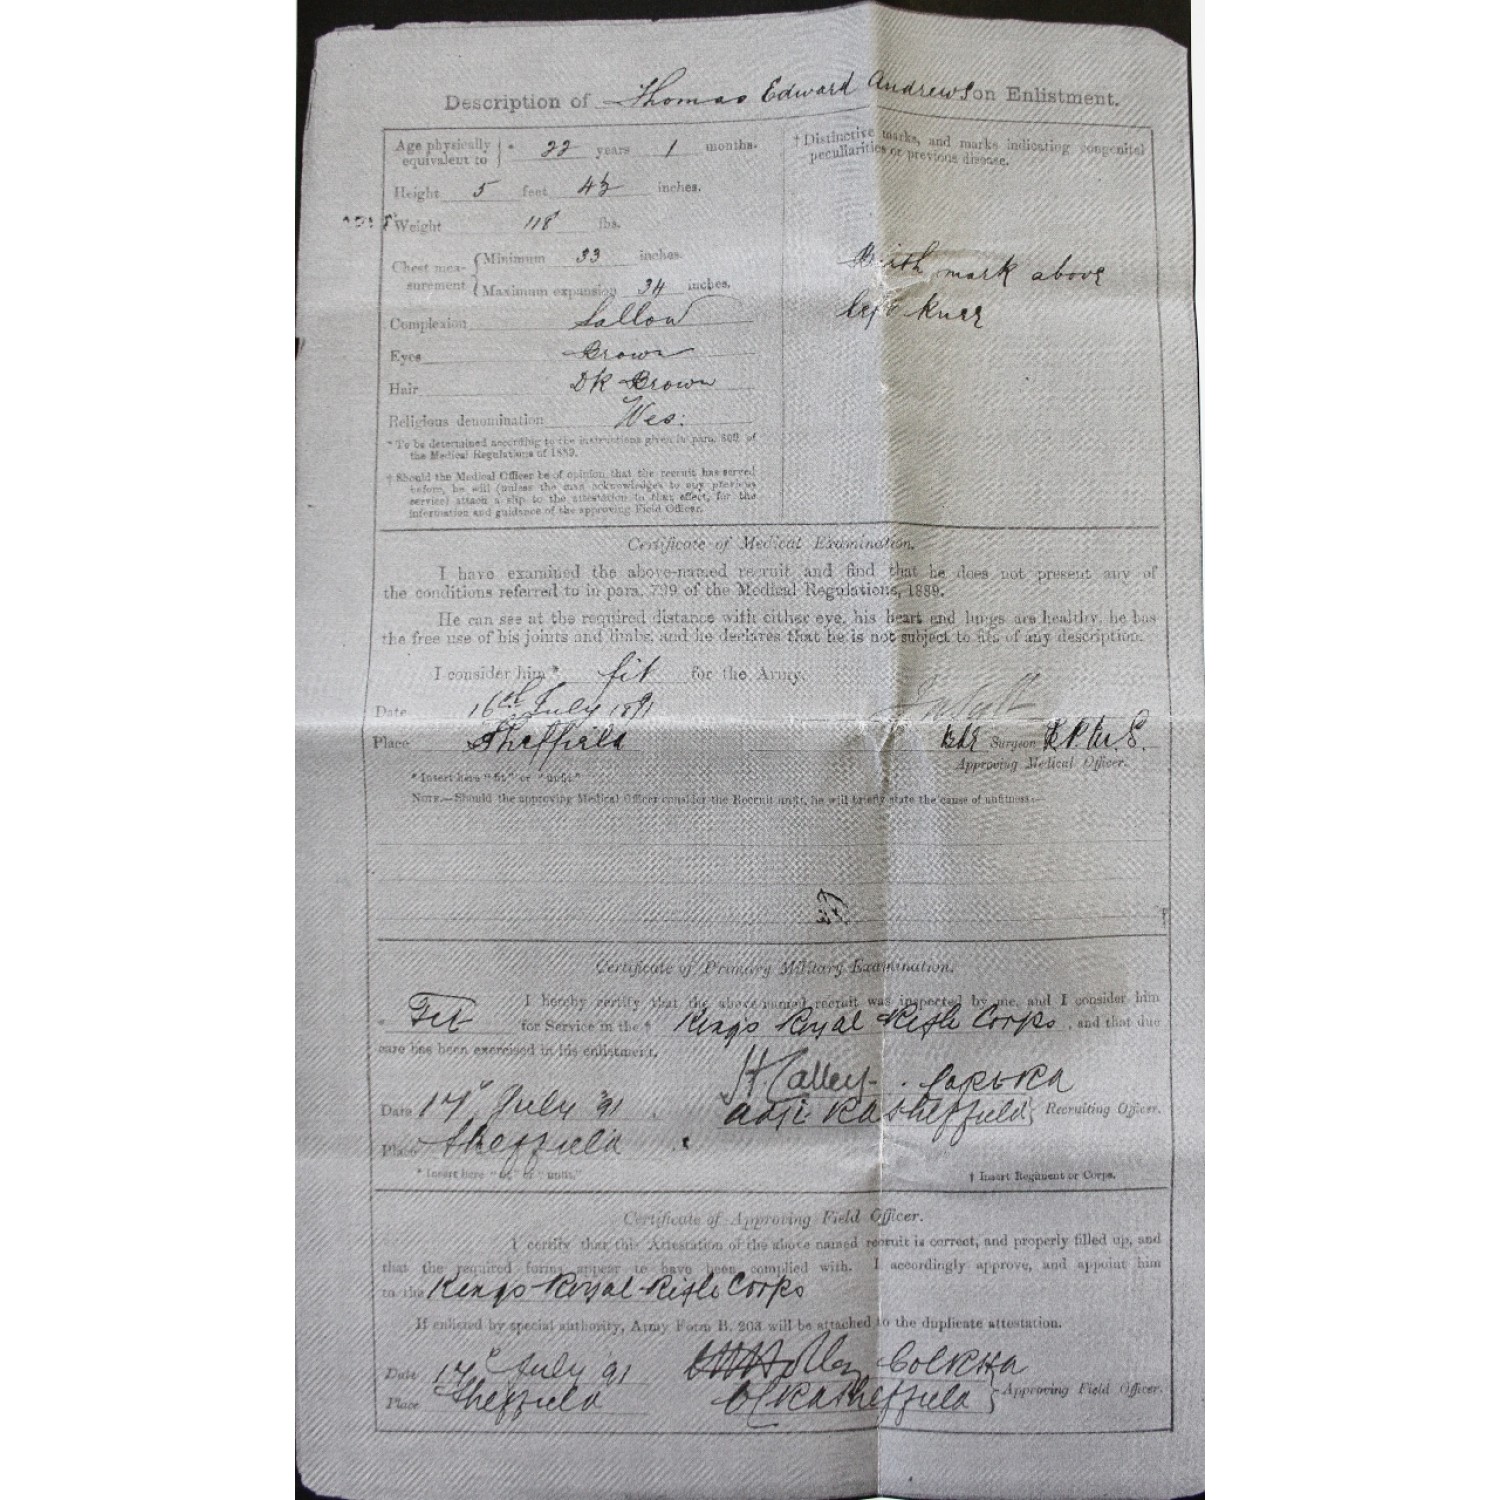 Description of Thomas Edward Andrews on Enlistment.
Age physically equivalent to } * 22 years 1 months.
Height 5 feet 4½ inches.
Weight 118 lbs.
Chest mea- { Minimum 33 inches.
surement { Maximum expansion 34 inches.
Complexion Sallow
Eyes Brown
Hair Dk Brown
Religious denomination Wes:
* To be determined according to the instructions given in para. 809 of
the Medical Regulations of 1889.
† Should the Medical Officer be of opinion that the recruit has served
before, he will (unless the man acknowledges to any previous
service) attach a slip to the attestation to that effect, for the
information and guidance of the approving Field Officer.
† Distinctive marks, and marks indicating congenital
peculiarities or previous disease.
Birth mark above
left knee
Certificate of Medical Examination.
I have examined the above-named recruit and find that he does not present any of
the conditions referred to in para. 799 of the Medical Regulations, 1889.
He can see at the required distance with either eye, his heart and lungs are healthy, he has
the free use of his joints and limbs, and he declares that he is not subject to fits of any description.
I consider him * fit for the Army.
Date 16th July 1891
Place Sheffield
Surgeon
Approving Medical Officer.
* Insert here "fit" or "unfit"
NOTE.—Should the approving Medical Officer consider the Recruit unfit, he will briefly state the cause of unfitness:—
Certificate of Primary Military Examination.
I hereby certify that the above-named recruit was inspected by me, and I consider him
* Fit for Service in the † Kings Royal Rifle Corps, and that due
care has been exercised in his enlistment.
Date 17 July 91
Place Sheffield
Sheffield } Recruiting Officer.
* Insert here "fit" or "unfit."
† Insert Regiment or Corps.
Certificate of Approving Field Officer.
I certify that this Attestation of the above named recruit is correct, and properly filled up, and
that the required forms appear to have been complied with. I accordingly approve, and appoint him
to the Kings Royal Rifle Corps
If enlisted by special authority, Army Form B. 203 will be attached to the duplicate attestation.
Date 17 July 91
Place Sheffield
Sheffield } Approving Field Officer.